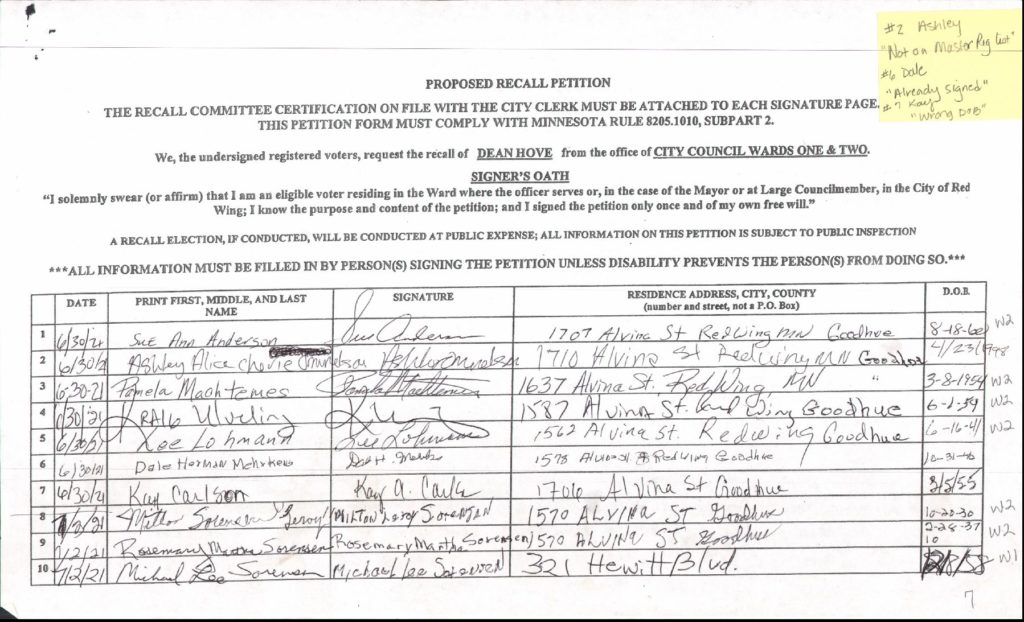 #2 Ashley
"Not on Master Reg list"
#6 Dale
"Already Signed"
#7 Kay
"Wrong DOB"
PROPOSED RECALL PETITION
THE RECALL COMMITTEE CERTIFICATION ON FILE WITH THE CITY CLERK MUST BE ATTACHED TO EACH SIGNATURE PAGE.
THIS PETITION FORM MUST COMPLY WITH MINNESOTA RULE 8205.1010, SUBPART 2.
We, the undersigned registered voters, request the recall of DEAN HOVE from the office of CITY COUNCIL WARDS ONE & TWO.
SIGNER'S OATH
"I solemnly swear (or affirm) that I am an eligible voter residing in the Ward where the officer serves or, in the case of the Mayor or at Large Councilmember, in the City of Red
Wing; I know the purpose and content of the petition; and I signed the petition only once and of my own free will."
A RECALL ELECTION, IF CONDUCTED, WILL BE CONDUCTED AT PUBLIC EXPENSE; ALL INFORMATION ON THIS PETITION IS SUBJECT TO PUBLIC INSPECTION
***ALL INFORMATION MUST BE FILLED IN BY PERSON(S) SIGNING THE PETITION UNLESS DISABILITY PREVENTS THE PERSON(S) FROM DOING SO.***
DATE PRINT FIRST, MIDDLE, AND LAST NAME SIGNATURE RESIDENCE ADDRESS, CITY, COUNTY (number and street, not a P.O. Box) D.O.B.
1 6/30/21 Sue Ann Anderson Sue Anderson 1707 Alvina St Red Wing MN Goodhue 8-18-60 W2
2 6/30/21 Ashley Alice 1710 Alvina St Red Wing MN Goodhue 4/23/1998
3 6-30-21 Pamela Machtemes Pamela Machtemes 1637 Alvina St. Red Wing MN " 3-8-1954 W2
4 6/30/21 1587 Alvina St. Red Wing Goodhue 6-1-59 W2
5 6/30/21 Lee Lohmann Lee Lohmann 1562 Alvina St. Red Wing Goodhue 6-16-41 W2
6 6/30/21 Dale Herman Dale H. 1578 Alvina St Red Wing Goodhue
7 6/30/21 Kay Carlson Kay A. Carlson 1706 Alvina St Goodhue 3/5/55
8 Milton Sorensen Leroy MILTON Leroy SORENSEN 1570 ALVINA ST Goodhue 10-20-30 W2
9 7/2/21 Rosemary Martha Sorensen Rosemary Martha Sorensen 1570 ALVINA ST Goodhue 2-28-37 10 W2
10 7/2/21 Michael Lee Sorensen Michael Lee Sorensen 321 Hewitt Blvd. W1
7